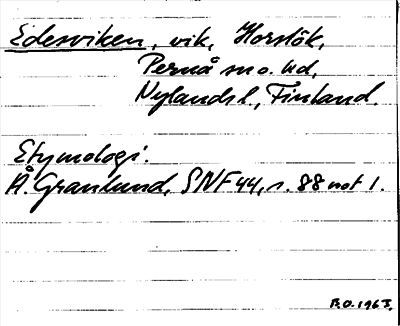 Edesviken, vik, Horslök,
Pernå sn o. hd,
Nylands l., Finland.
Etymologi.
Å. Granlund, SNF 44, s. 88 not 1.
B.O. 1963.